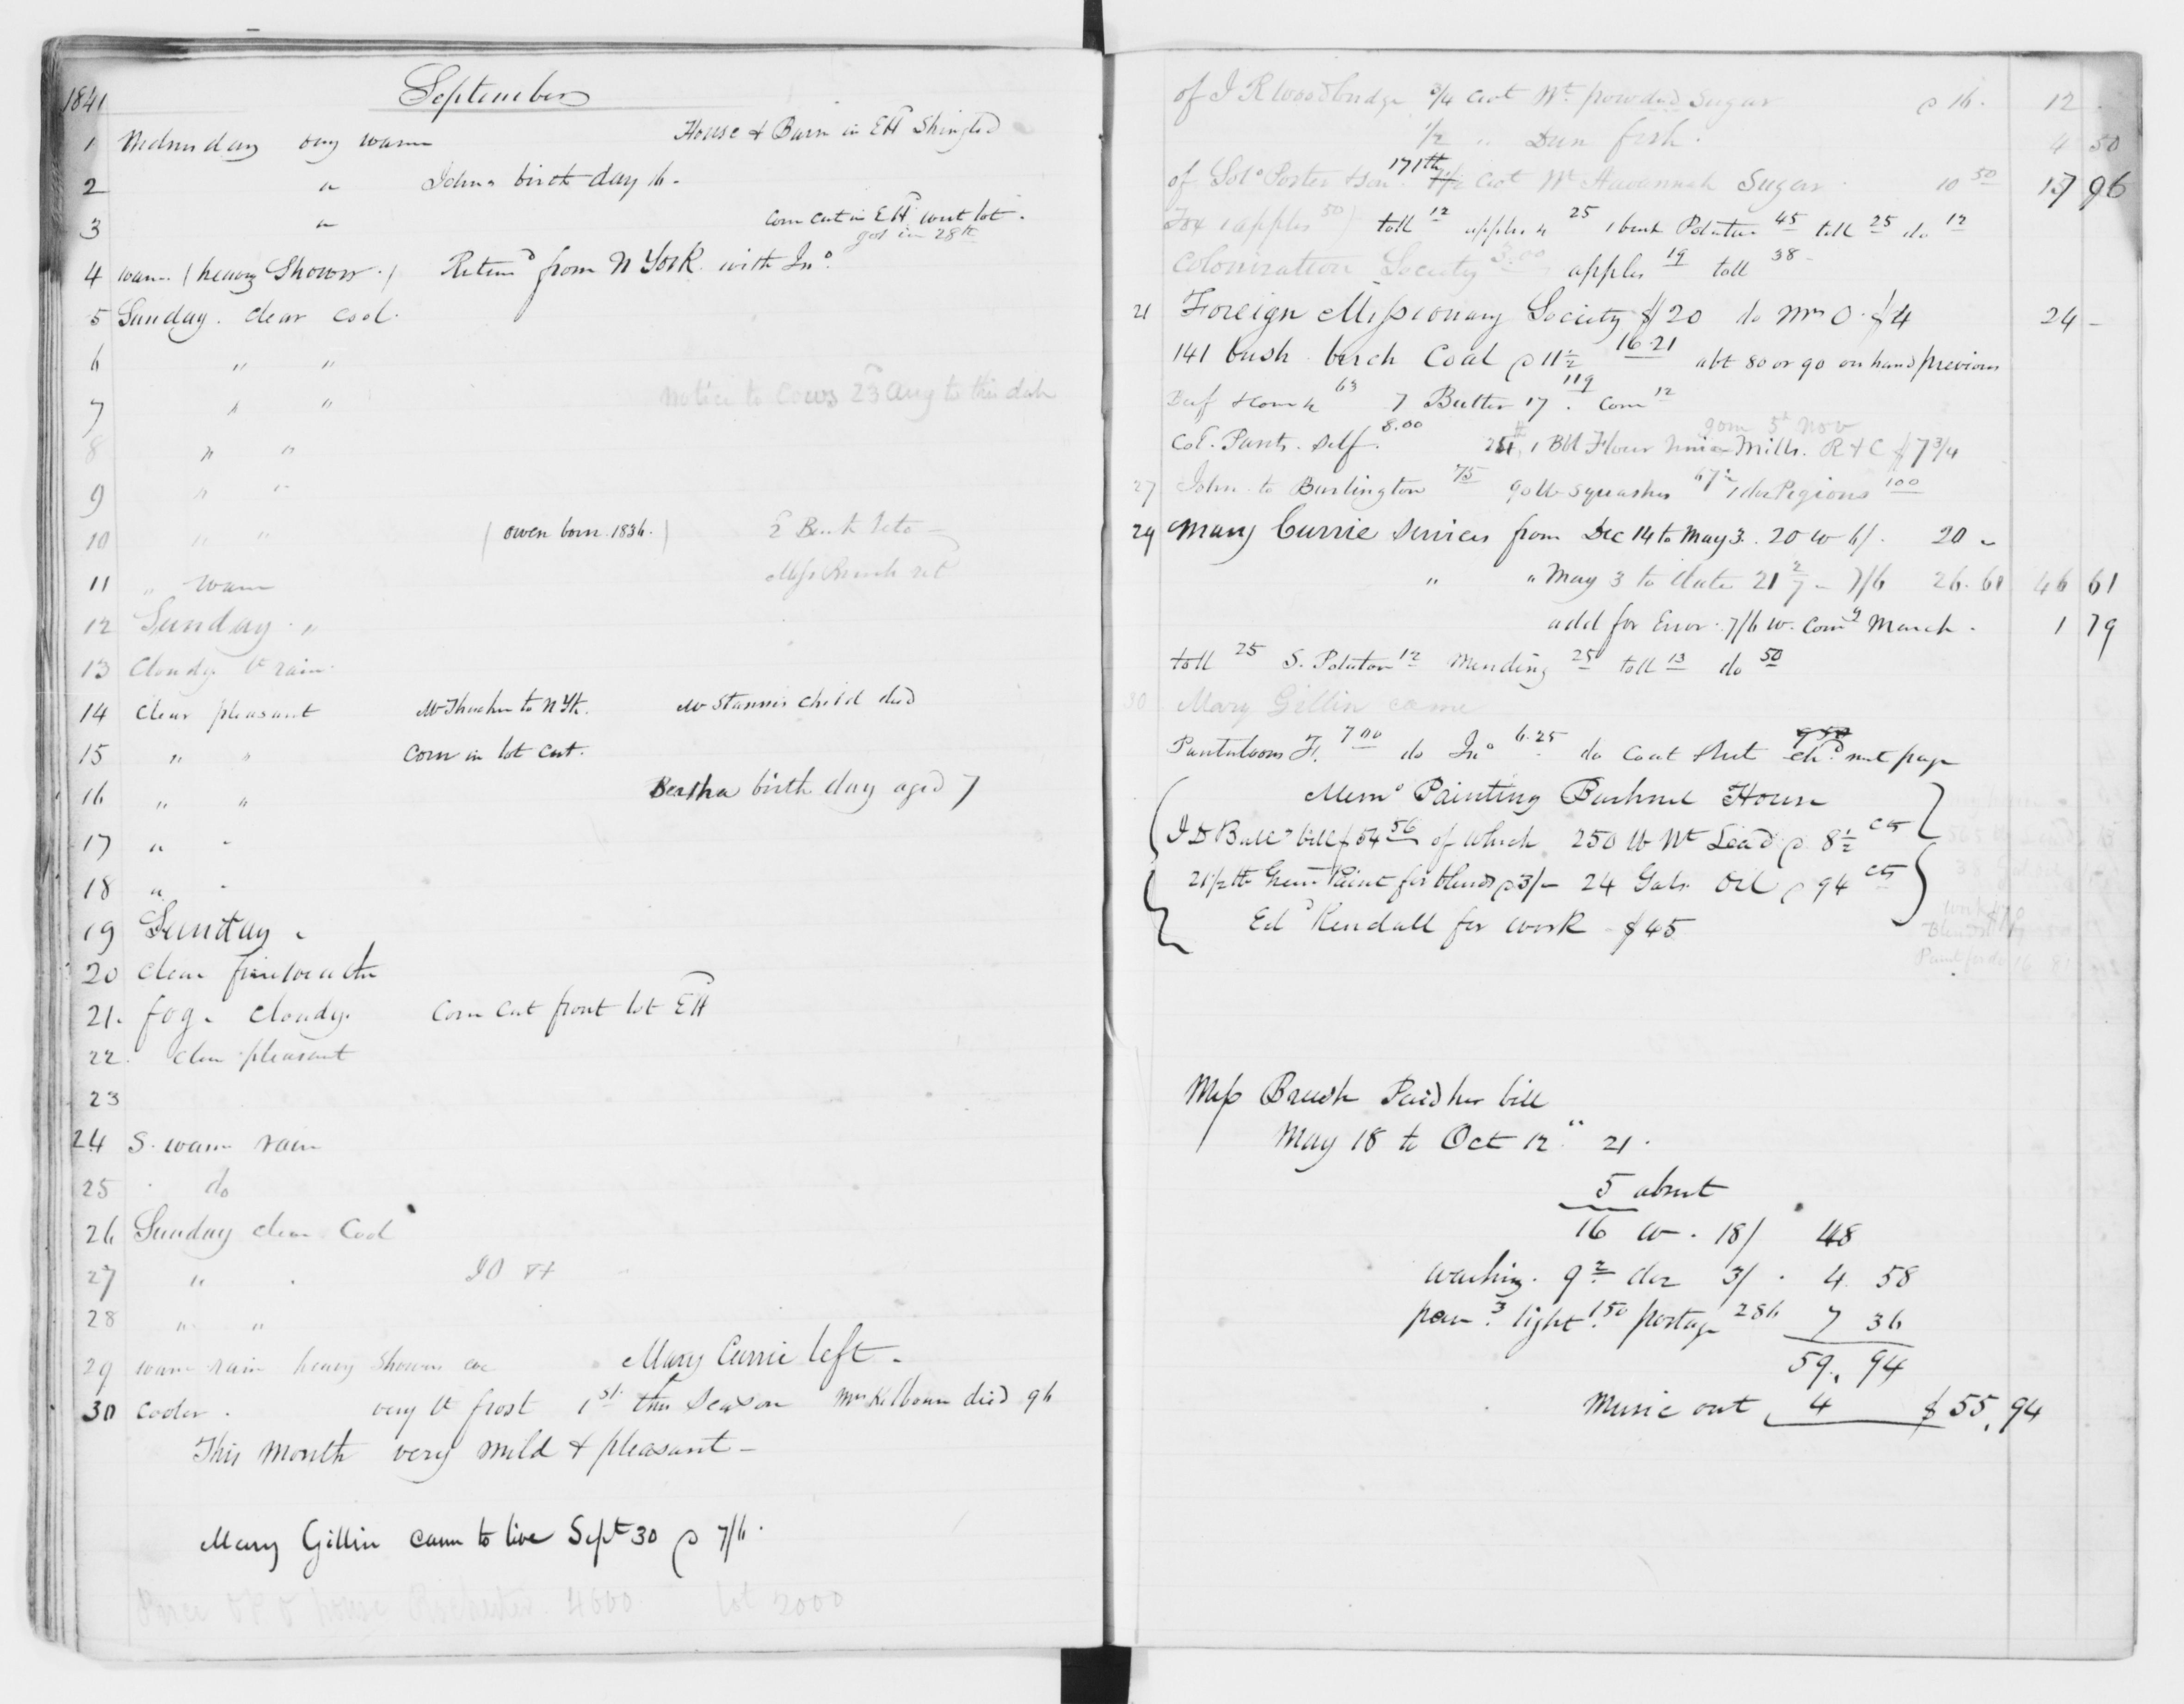 1841 September
1 Wednesday very warm House & Barn in EH Shingled
2 " Johns birth day 16.
3 " Corn cut in EH west lot.
got in 28th
4 warm (heavy Shower.) Retund from N York with Jno.
5 Sunday. clear cool.
6 " "
7 " " Notice to Cows 23 Aug to this date
8 " "
9 " "
10 " " (Owen born 1836.)
11 " warm
12 Sunday. "
13 Cloudy lt rain.
14 Clear pleasant Mr Thacher to N Yk. Mr Stannis child died
15 " " Corn in lot cut.
16 " " Bertha birth day aged 7
17 " "
18 " "
19 Sunday "
20 clear fine weather
21. fog. cloudy. Corn cut front lot EH
22. clear pleasant
23
24 S. warm rain
25 " do
26 Sunday clear Cool
27 " "
28 " "
29 warm rain heavy showers eve Mary Currie left.
30 Cooler. very lt frost 1st this season Mrs Kilbourn died 96
This month very mild & pleasant
Mary Gillin came to live Sept 30 @ 7/6.
house Rochester. 4600 lot 2000
of J R Woodbridge 3/4 Cwt Wt. powdered Sugar @ 16. 12
1/2 " Dun fish. 4 50
of Solo Porter & Son. 171 lb 1 1/2 Cwt Wt Havannah Sugar 10 50 17 96
apples 50) toll 12 apples 25 1 bush Potatoes 45 toll 25 do 12
Colonization Society 3.00 apples 19 toll 38
21 Foreign Missionary Society $20 do Mrs O. $4 24 -
141 bush. birch Coal @ 11 1/2 16.21 abt 80 or 90 on hand previous
Beef 63 7 Butter 17. 119 Corn 12
gone 5th Nov
Col. Pants. self. 8.00 1 Bbl Flour Union Mills. R & C $7 3/4
27 John to Burlington 75 90 lb Squashes 67 1/2 1 doz Pigions 100
29 Mary Currie services from Dec 14 to May 3. 20 w 6/. 20 -
" " May 3 to date 21 2/7 - 7/6 26.61 46 61
add for Error. 7/6 w. Comg March. 1 79
toll 25 S. Potatoes 12 Mending 25 toll 13 do 50
30 Mary Gillin came
Pantaloons F. 7.00 do Jno 6.25 do Coat & Vest chd next page
Memo Painting Bushnel House
J D Bull's bill $54 56 of which 250 lb Wt Lead @ 8 1/2 cts
21 1/2 lb Green Paint for blinds @ 3/- 24 Gals Oil @ 94 cts
Ed Kendall for work - $45
Miss Brush Paid her bill
May 18 to Oct 12 " 21.
5 absent
16 w. 18/ 48
washing. 9 2 doz 3/. 4 58
3 light 1.50 postage 286 7 36
59. 94
Music out 4 $55.94